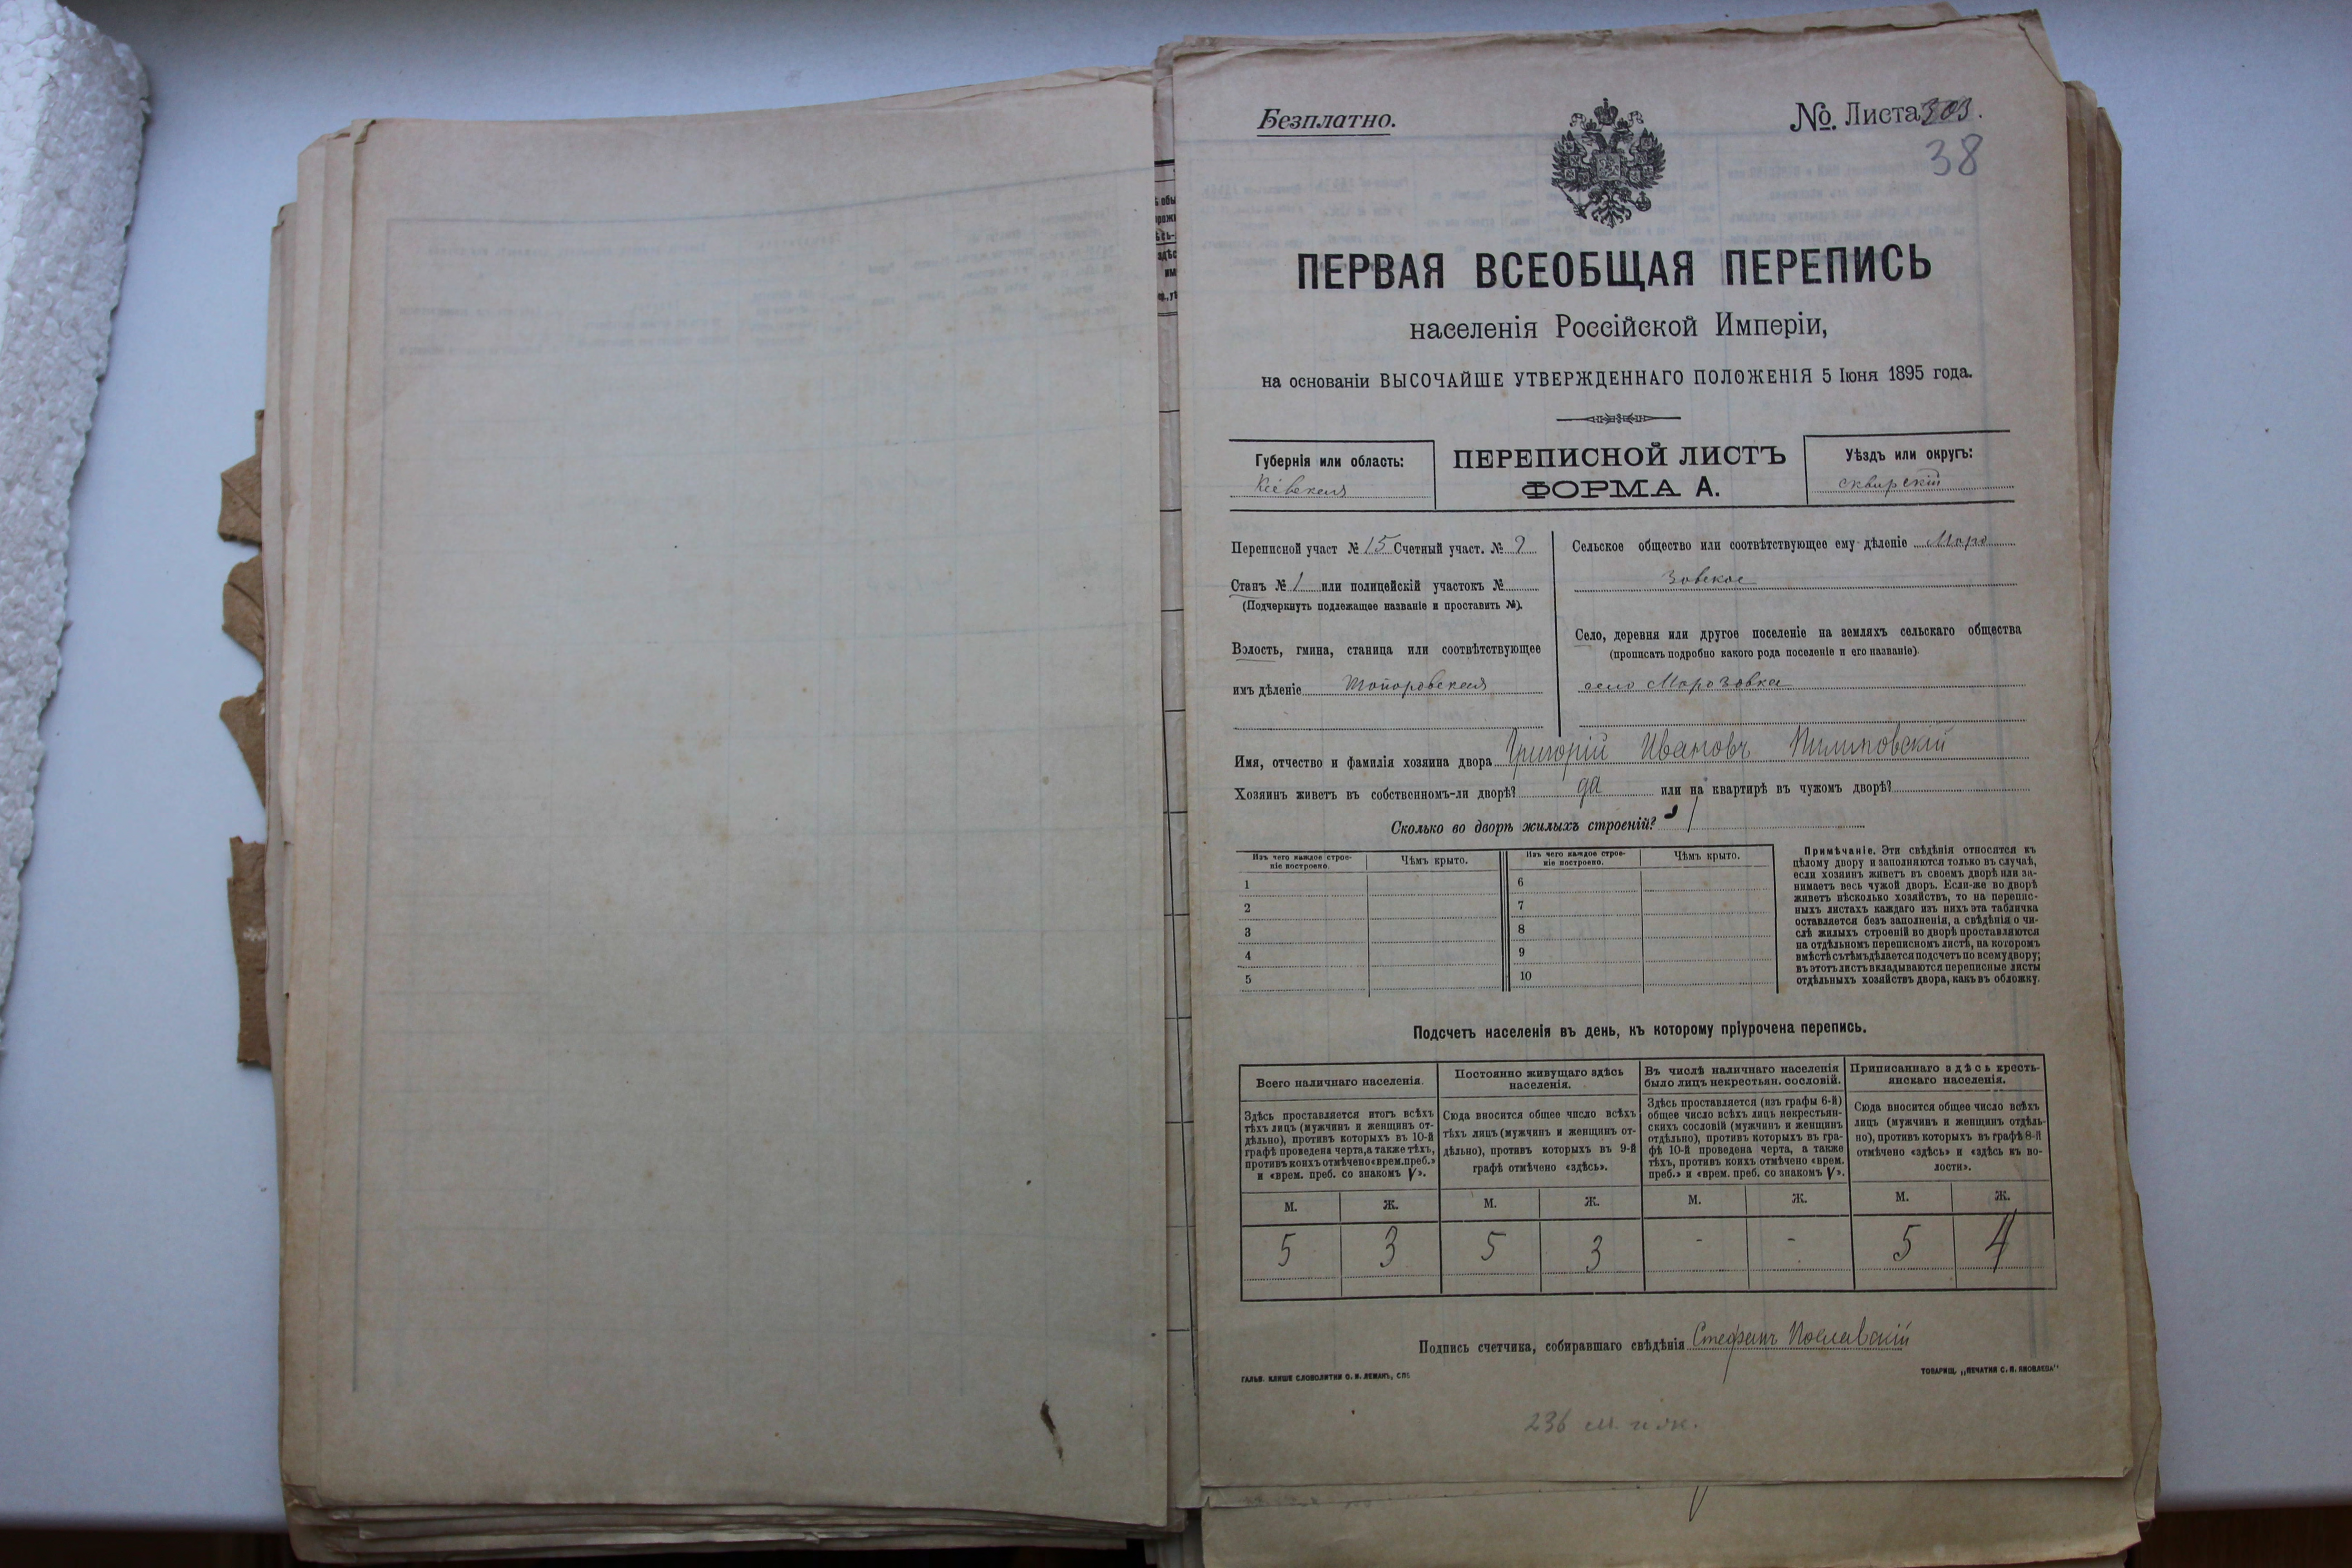 Безплатно.
№. Листа 303.
38
ПЕРВАЯ ВСЕОБЩАЯ ПЕРЕПИСЬ
населенія Россійской Имперіи,
на основаніи ВЫСОЧАЙШЕ УТВЕРЖДЕННАГО ПОЛОЖЕНІЯ 5 Іюня 1895 года.
Губернія или область:
Кіевская
ПЕРЕПИСНОЙ ЛИСТЪ
ФОРМА А.
Уѣздъ или округъ:
сквирскій
Переписной участ № 15 Счетный участ. № 9
Станъ № 1 или полицейскій участокъ №
(Подчеркнуть подлежащее названіе и проставить №).
Волость, гмина, станица или соотвѣтствующее
имъ дѣленіе Топоровская
Сельское общество или соотвѣтствующее ему дѣленіе Моро
зовское
Село, деревня или другое поселеніе на земляхъ сельскаго общества
(прописать подробно какого рода поселеніе и его названіе).
село Морозовка
Имя, отчество и фамилія хозяина двора Григорій Ивановъ
Хозяинъ живетъ въ собственномъ-ли дворѣ? да или на квартирѣ въ чужомъ дворѣ?
Сколько во дворѣ жилыхъ строеній? 1
Изъ чего каждое строе-
ніе построено.
Чѣмъ крыто.
Изъ чего каждое строе-
ніе построено.
Чѣмъ крыто.
1
6
2
7
3
8
4
9
5
10
Примѣчаніе. Эти свѣдѣнія относятся къ
цѣлому двору и заполняются только въ случаѣ,
если хозяинъ живетъ въ своемъ дворѣ или за-
нимаетъ весь чужой дворъ. Если-же во дворѣ
живетъ нѣсколько хозяйствъ, то на перепис-
ныхъ листахъ каждаго изъ нихъ эта табличка
оставляется безъ заполненія, а свѣдѣнія о чи-
слѣ жилыхъ строеній во дворѣ проставляются
на отдѣльномъ переписномъ листѣ, на которомъ
вмѣстѣ съ тѣмъ дѣлается подсчетъ по всему двору;
въ этотъ листъ вкладываются переписные листы
отдѣльныхъ хозяйствъ двора, какъ въ обложку.
Подсчетъ населенія въ день, къ которому пріурочена перепись.
Всего наличнаго населенія.
Здѣсь проставляется итогъ всѣхъ
тѣхъ лицъ (мужчинъ и женщинъ от-
дѣльно), противъ которыхъ въ 10-й
графѣ проведена черта, а также тѣхъ,
противъ коихъ отмѣчено «врем. преб.»
и «врем. преб. со знакомъ V».
Постоянно живущаго здѣсь
населенія.
Сюда вносится общее число всѣхъ
тѣхъ лицъ (мужчинъ и женщинъ от-
дѣльно), противъ которыхъ въ 9-й
графѣ отмѣчено «здѣсь».
Въ числѣ наличнаго населенія
было лицъ некрестьян. сословій.
Здѣсь проставляется (изъ графы 6-й)
общее число всѣхъ лицъ некрестьян-
скихъ сословій (мужчинъ и женщинъ
отдѣльно), противъ которыхъ въ гра-
фѣ 10-й проведена черта, а также
тѣхъ, противъ коихъ отмѣчено «врем.
преб.» и «врем. преб. со знакомъ V».
Приписаннаго здѣсь кресть-
янскаго населенія.
Сюда вносится общее число всѣхъ
лицъ (мужчинъ и женщинъ отдѣль-
но), противъ которыхъ въ графѣ 8-й
отмѣчено «здѣсь» и «здѣсь къ во-
лости».
М. Ж. М. Ж. М. Ж. М. Ж.
5 3 5 3 - - 5 4
Подпись счетчика, собиравшаго свѣдѣнія Стефанъ
ГАЛЬВ. КЛИШЕ СЛОВОЛИТНИ О. И. ЛЕМАНЪ, СПБ.
ТОВАРИЩ. „ПЕЧАТНЯ С. П. ЯКОВЛЕВА"
236 м. и ж.